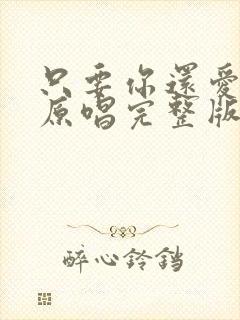 只要你還愛
原唱完整版
醉心鈴鐺